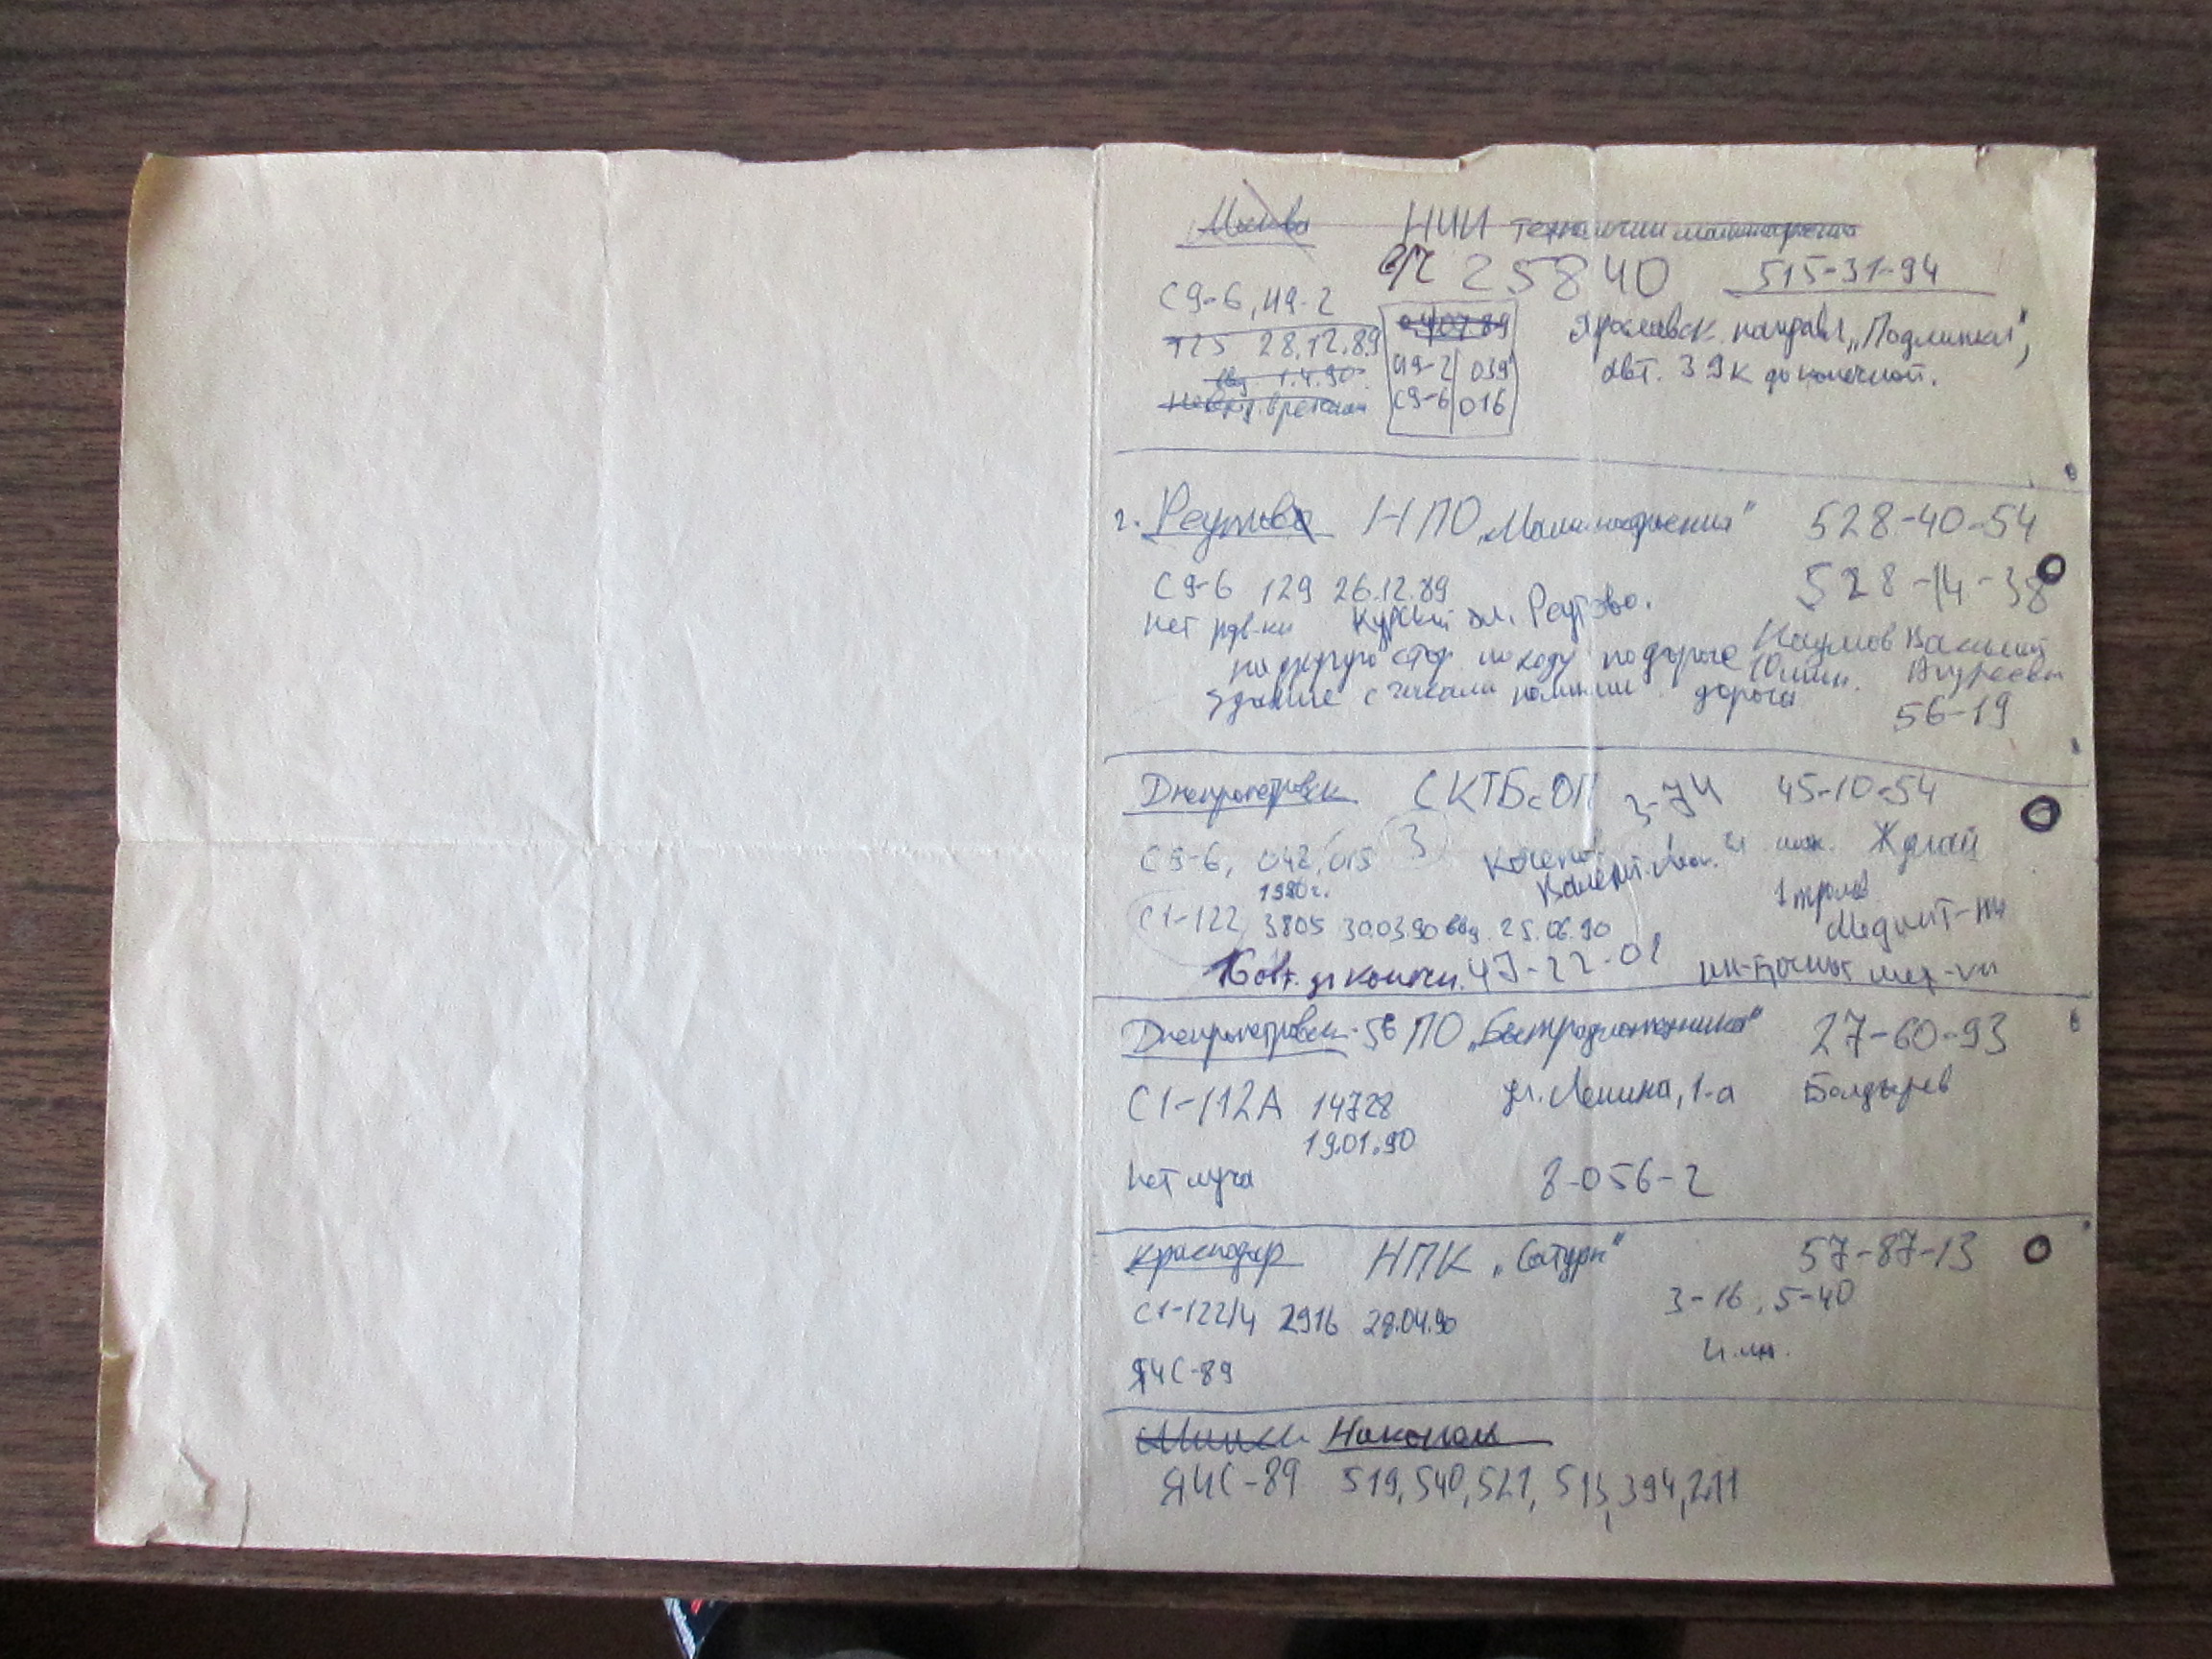 Москва НИИ технологии машиностроения
п/я 25840 515-31-94
С9-6, И9-2
125 28.12.89 04.07.89 Ярославск. направл. „Подлипки",
введ. 1.4.90 И9-2 039 авт. 39к до конечной.
С9-6 016
г. Реутово НПО „Машиностроения" 528-40-54
С9-6 129 26.12.89 528-14-38
нет разв-ки Курский вкз. Реутово.
на другую стор. по ходу по дороге 10 мин. Наумов Василий
здание с часами дорога Андреевич
56-19
Днепропетровск СКТБ с ОП 3-74 45-10-54
С9-6, 042, 015 3
1980г.
1 тролл.
С1-122 3805 30.03.90 введ. 25.06.90
16 авт. до конечн. 47-22-01
Днепропетровск-56 ПО „Быtрадиотехника" 27-60-93
С1-112А 14728 ул. Ленина, 1-а Болдырев
19.01.90
нет луча 8-056-2
Краснодар НПК „Сатурн" 57-87-13
С1-122/4 2916 28.04.90 3-16, 5-40
ЯЧС-89
Никополь
ЯЧС-89 519, 540, 521, 513, 394, 211